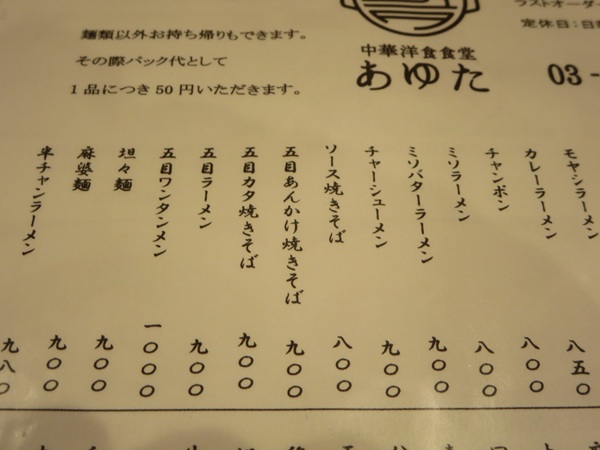 麺類以外お持ち帰りもできます。
その際パック代として
1品につき50円いただきます。
中華洋食食堂
あゆた
ラストオーダー
定休日：日
03-
モヤシラーメン
カレーラーメン 八五〇
チャンポン 八〇〇
ミソラーメン 八〇〇
ミソバターラーメン 九〇〇
チャーシューメン 九〇〇
ソース焼きそば 八〇〇
五目あんかけ焼きそば 九〇〇
五目カタ焼きそば 九〇〇
五目ラーメン 九〇〇
五目ワンタンメン 一〇〇〇
坦々麺 九〇〇
麻婆麺 九〇〇
半チャンラーメン 九八〇